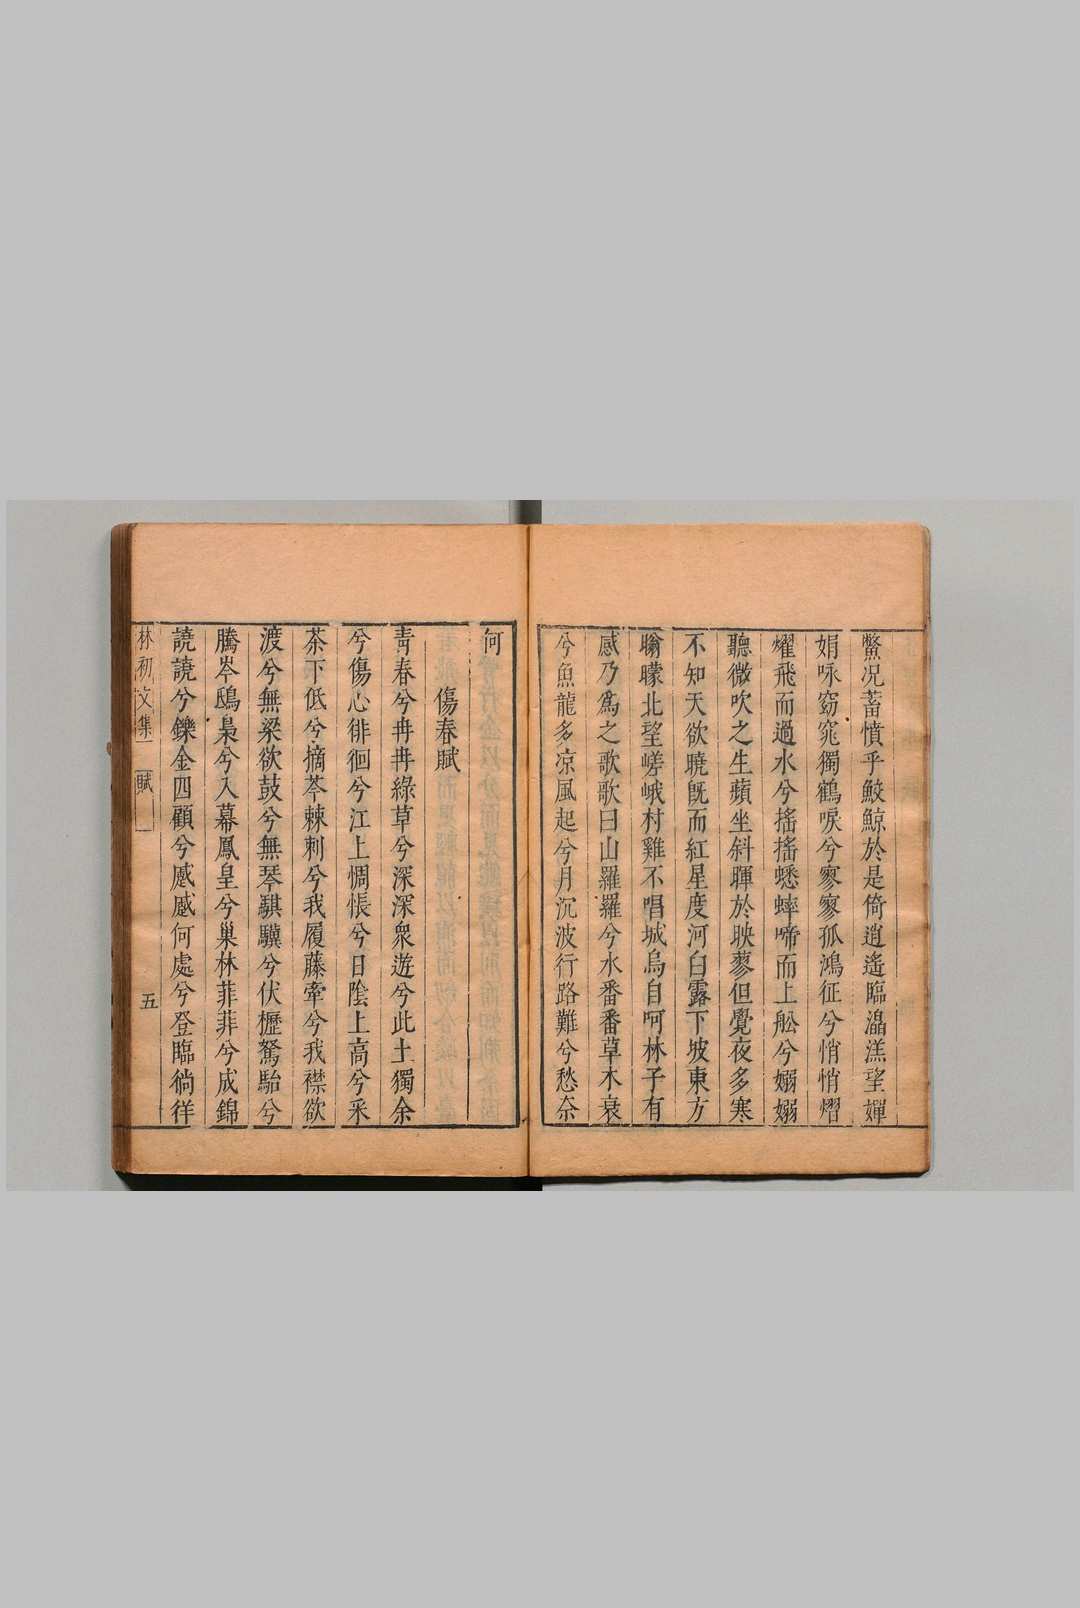 鱉况蓄憤乎鮫鯨於是倚逍遙臨溋漾望嬋
娟咏窈窕獨鶴唳兮寥寥孤鴻征兮悄悄熠
燿飛而過水兮搖搖蟋蟀啼而上舩兮嫋嫋
聽微吹之生蘋坐斜暉於映蓼但覺夜多寒
不知天欲曉旣而紅星度河白露下坡東方
曈曚北望嵯峨村雞不唱城烏自呵林子有
感乃爲之歌歌曰山羅羅兮水番番草木衰
兮魚龍多凉風起兮月沉波行路難兮愁奈
何
傷春賦
靑春兮冉冉綠草兮深深衆遊兮此土獨余
兮傷心徘徊兮江上惆悵兮日陰上高兮采
茶下低兮摘芩棘刺兮我履藤牽兮我襟欲
渡兮無梁欲鼓兮無琴騏驥兮伏櫪駑駘兮
騰岑鴟梟兮入幕鳳皇兮巢林菲菲兮成錦
譊譊兮鑠金四顧兮慼慼何處兮登臨徜徉
林初文集 賦 五